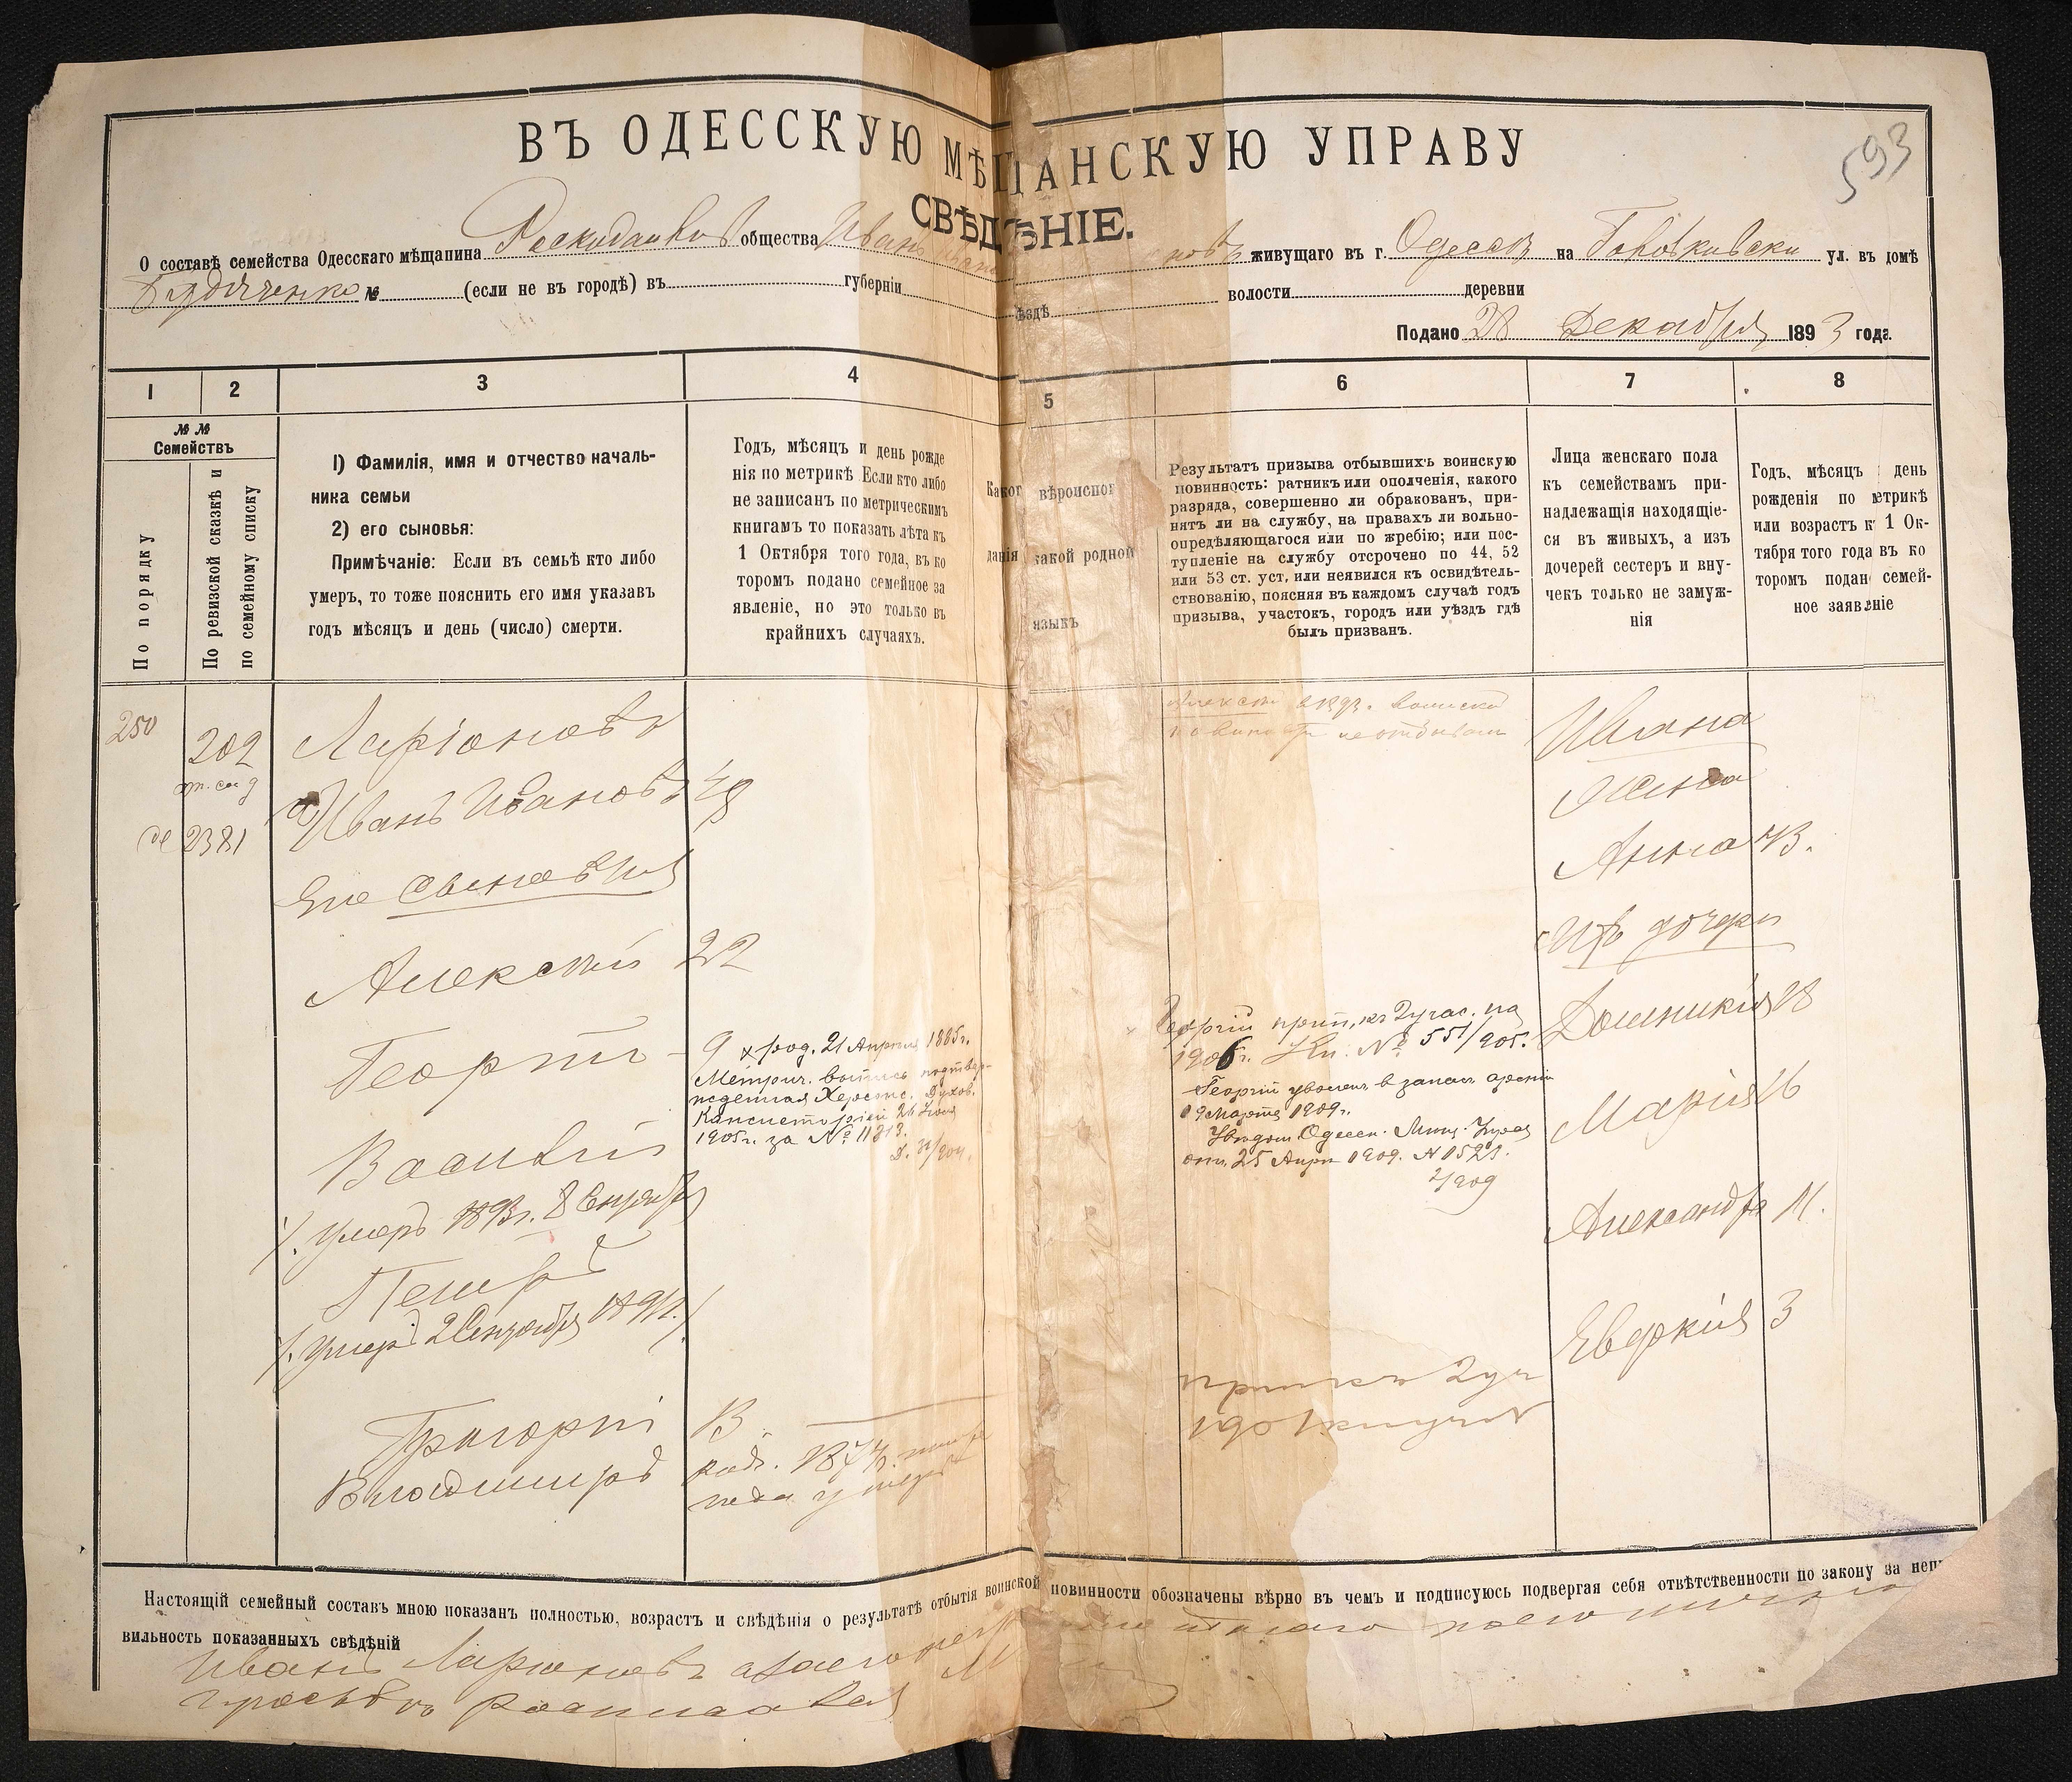 593
ВЪ ОДЕССКУЮ МѢЩАНСКУЮ УПРАВУ
СВѢДѢНІЕ.
О составѣ семейства Одесскаго мѣщанина общества Иванъ живущаго въ г. Одессѣ на ул. въ домѣ
№ (если не въ городѣ) въ губерніи ѣздѣ волости деревни
Подано 28 Декабря 1893 года.
1 2 3 4 5 6 7 8
№ №
Семействъ
По порядку
По ревизской сказкѣ и
по семейному списку
1) Фамилія, имя и отчество началь-
ника семьи
2) его сыновья:
Примѣчаніе: Если въ семьѣ кто либо
умеръ, то тоже пояснить его имя указавъ
годъ мѣсяцъ и день (число) смерти.
Годъ, мѣсяцъ и день рожде
нія по метрикѣ Если кто либо
не записанъ по метрическимъ
книгамъ то показать лѣта къ
1 Октября того года, въ ко
торомъ подано семейное за
явленіе, но это только въ
крайнихъ случаяхъ.
Каког вѣроиспог
данія какой родной
языкъ
Результатъ призыва отбывшихъ воинскую
повинность: ратникъ или ополченія, какого
разряда, совершенно ли обракованъ, при-
нятъ ли на службу, на правахъ ли вольно-
опредѣляющагося или по жребію; или пос-
тупленіе на службу отсрочено по 44, 52
или 53 ст. уст. или неявился къ освидѣтель-
ствованію, поясняя въ каждомъ случаѣ годъ
призыва, участокъ, городъ или уѣздъ гдѣ
былъ призванъ.
Лица женскаго пола
къ семействамъ при-
надлежащія находящіе-
ся въ живыхъ, а изъ
дочерей сестеръ и вну-
чекъ только не замуж-
нія
Годъ, мѣсяцъ день
рожденія по етрикѣ
или возрастъ к 1 Ок-
тября того года въ ко
торомъ подан семей-
ное заявленіе
250
202
2381
Ларіоновъ
Иванъ Ивановъ 48
Его сыновья
Алексѣй 22
Георгій - 9 х род. 21 Апрѣля 1885 г.
Метрич. выпись подтвер-
жденная Херсонс. Духов.
Консисторіей 26 Іюля
1905 г. за № 11813.
Василій
/. Умеръ 1893 г. 8 Сентября
Петръ
/. Умеръ 2 Сентября 1891 г. /.
Григорій 13
Владиміръ род. 1874.
умеръ
Алексѣй в 1892. воинской
повинности не отбывалъ
Георгій прип. къ 2 участ. на
1906 г. Кн. № 551/905.
Георгій уволенъ в запасъ арміи
19 Марта 1909 г.
Увѣдом. Одесск. Мѣщ. Управ.
отъ 25 Апр. 1909. № 1521.
прип. къ 2 уч
1901
Ивана
Жена
Анна 43.
Ихъ дочери
Домникія 18
Марія 16
Александра 11.
Евдокія 3
Настоящій семейный составъ мною показанъ полностью, возрастъ и свѣдѣнія о результатѣ отбытія воинской повинности обозначены вѣрно въ чемъ и подписуюсь подвергая себя отвѣтственности по закону за неп
вильность показанныхъ свѣдѣній
Иванъ Ларіоновъ а за его
просьбою росписался